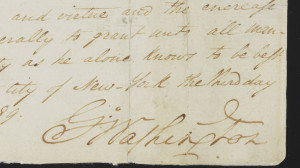 and virtue, and the encrease
erally to grant unto all man-
ty as he alone knows to be best.
city of New-York the third day
89.
G:Washington